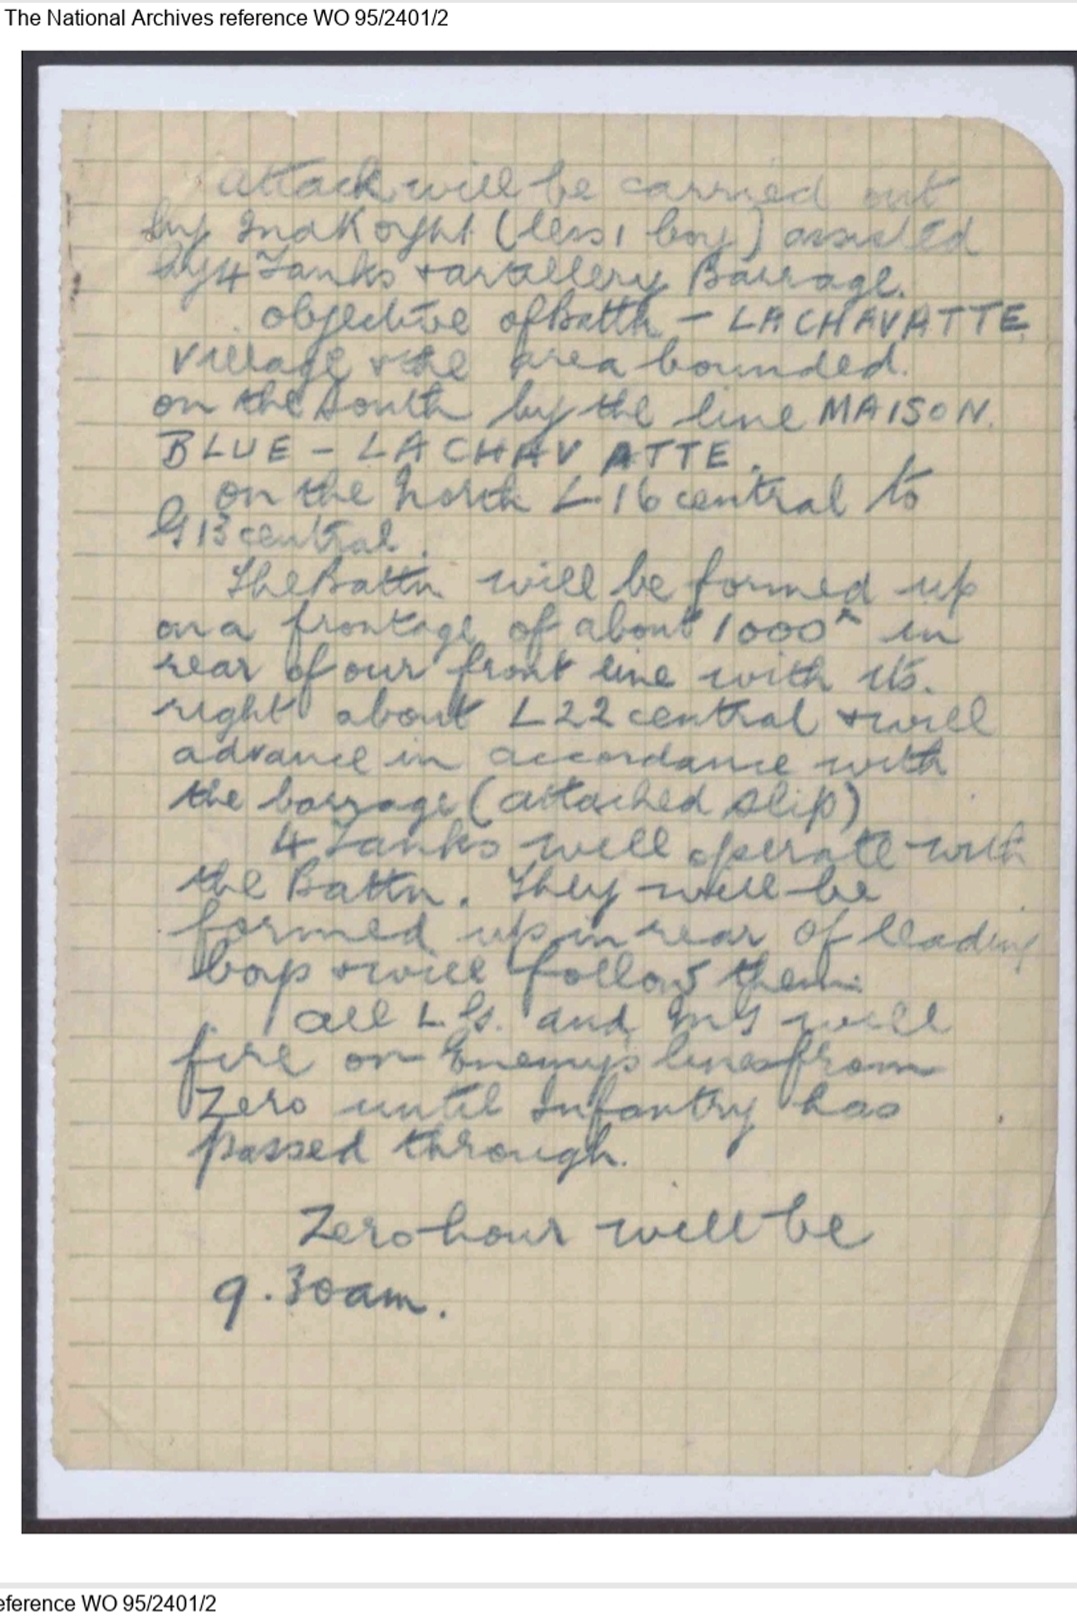 The National Archives reference WO 95/2401/2
attack will be carried out
by 2nd K O Y L I (less 1 Coy) assisted
by 4 Tanks & artillery Barrage.
objective of Battn - LA CHAVATTE
village & the area bounded.
on the South by the line MAISON.
BLUE - LA CHAVATTE.
on the North L-16 central to
G13 central.
The Battn will be formed up
on a frontage of about 1000x in
rear of our front line with its.
right about L22 central & will
advance in accordance with
the barrage (attached slip)
4 Tanks will operate with
the Battn. They will be
formed up in rear of leading
Coys & will follow them.
All L.Gs. and M G will
fire on Enemys lines from
Zero until Infantry has
passed through.
Zero hour will be
9.30am.
eference WO 95/2401/2